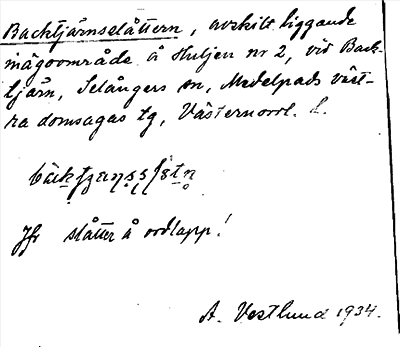 Backtjärnsslåttern, avskilt liggande
inägoområde å Huljen nr 2, vid Back-
tjärn, Selångers sn, Medelpads väst-
ra domsagas tg, Västernorrl. L.
Jfr slåtter å ordlapp!
A. Vestlund 1934.